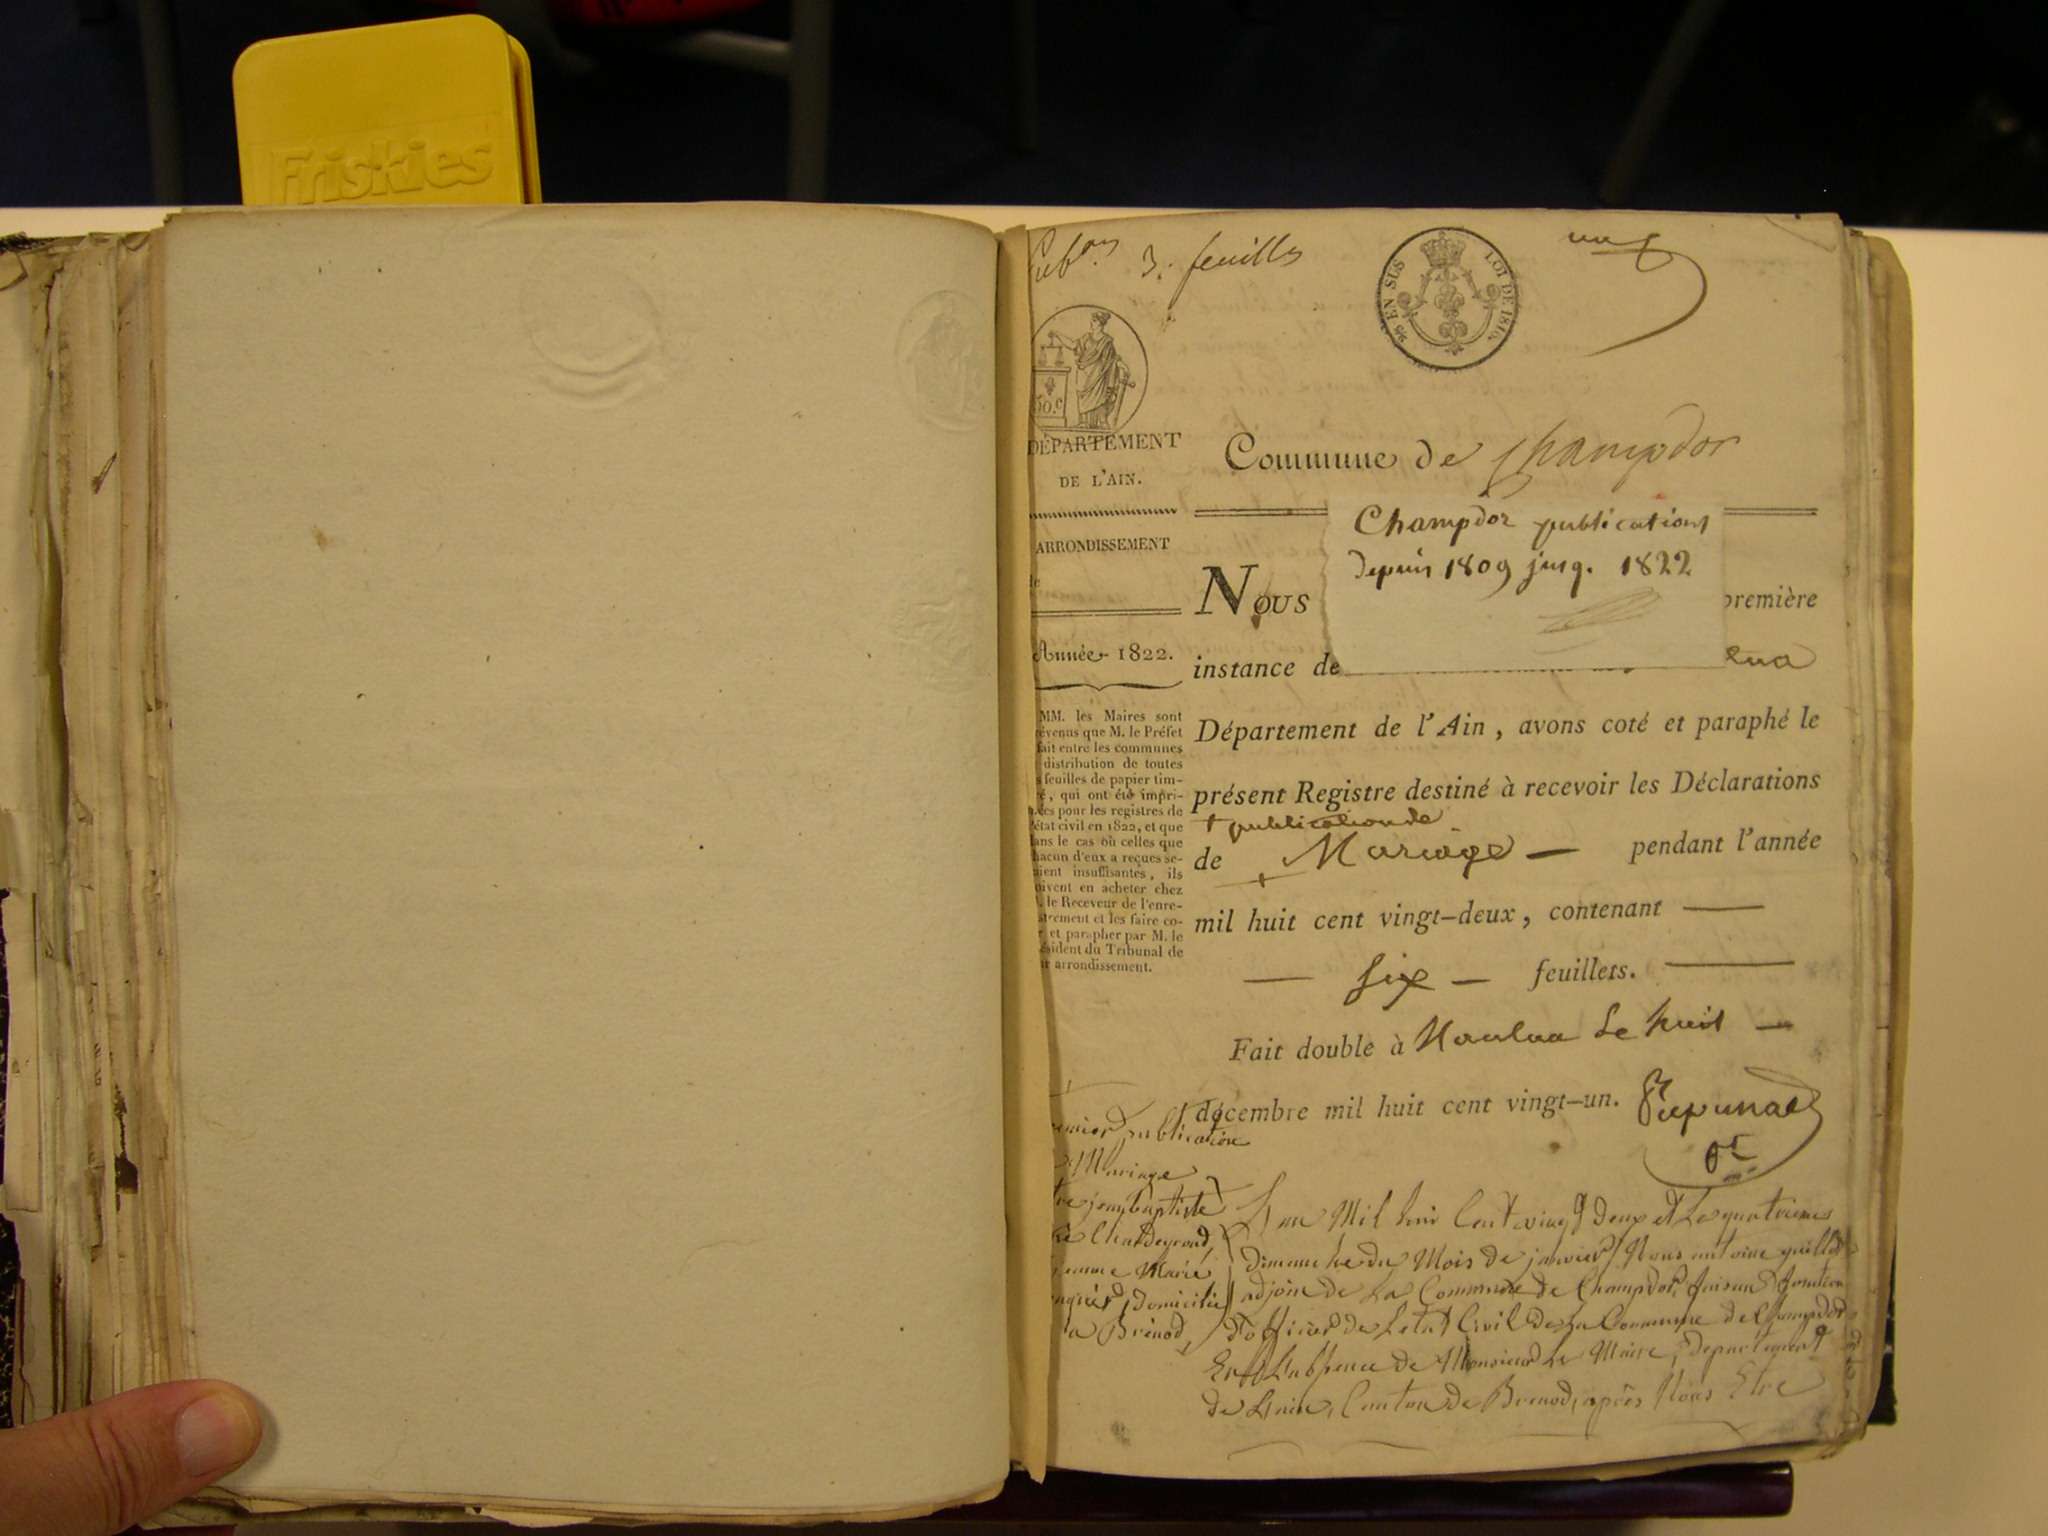 Friskies
3. feuilles
un
25 EN SUS LOI DE 1816.
50.c
DÉPARTEMENT
DE L'AIN.
Commune de Champdor
Champdor publications
depuis 1809 jusq. 1822
ARRONDISSEMENT
de
Nous première
Année 1822.
instance de ua
MM. les Maires sont
révenus que M. le Préfet
fait entre les communes
distribution de toutes
s feuilles de papier tim-
ré, qui ont été impri-
ées pour les registres de
'état civil en 1822, et que
ans le cas où celles que
hacun d'eux a reçues se-
aient insuffisantes, ils
oivent en acheter chez
. le Receveur de l'enre-
strement et les faire co-
r et parapher par M. le
ésident du Tribunal de
ur arrondissement.
Département de l'Ain, avons coté et paraphé le
présent Registre destiné à recevoir les Déclarations
+ publication de
de + Mariage — pendant l'année
mil huit cent vingt-deux, contenant —
— six — feuillets. —
Fait double à Nantua Le huit —
décembre mil huit cent vingt-un.
pt
remier publication
e Mariage
tre jean baptiste
jeanne Marie
domicilié
a Brénod,
L'an Mil huit Cent vingt deux et Le quatrieme
dimanche du Mois de janvier, Nous antoine guillot
adjoin de La Commune de Champdor, faisant fonction
d'officier de Letat Civil de La Commune de Champdor
En L'absence de Monsieur Le Maire, departement
de L'ain, Canton de Brenod, après Nous Etre